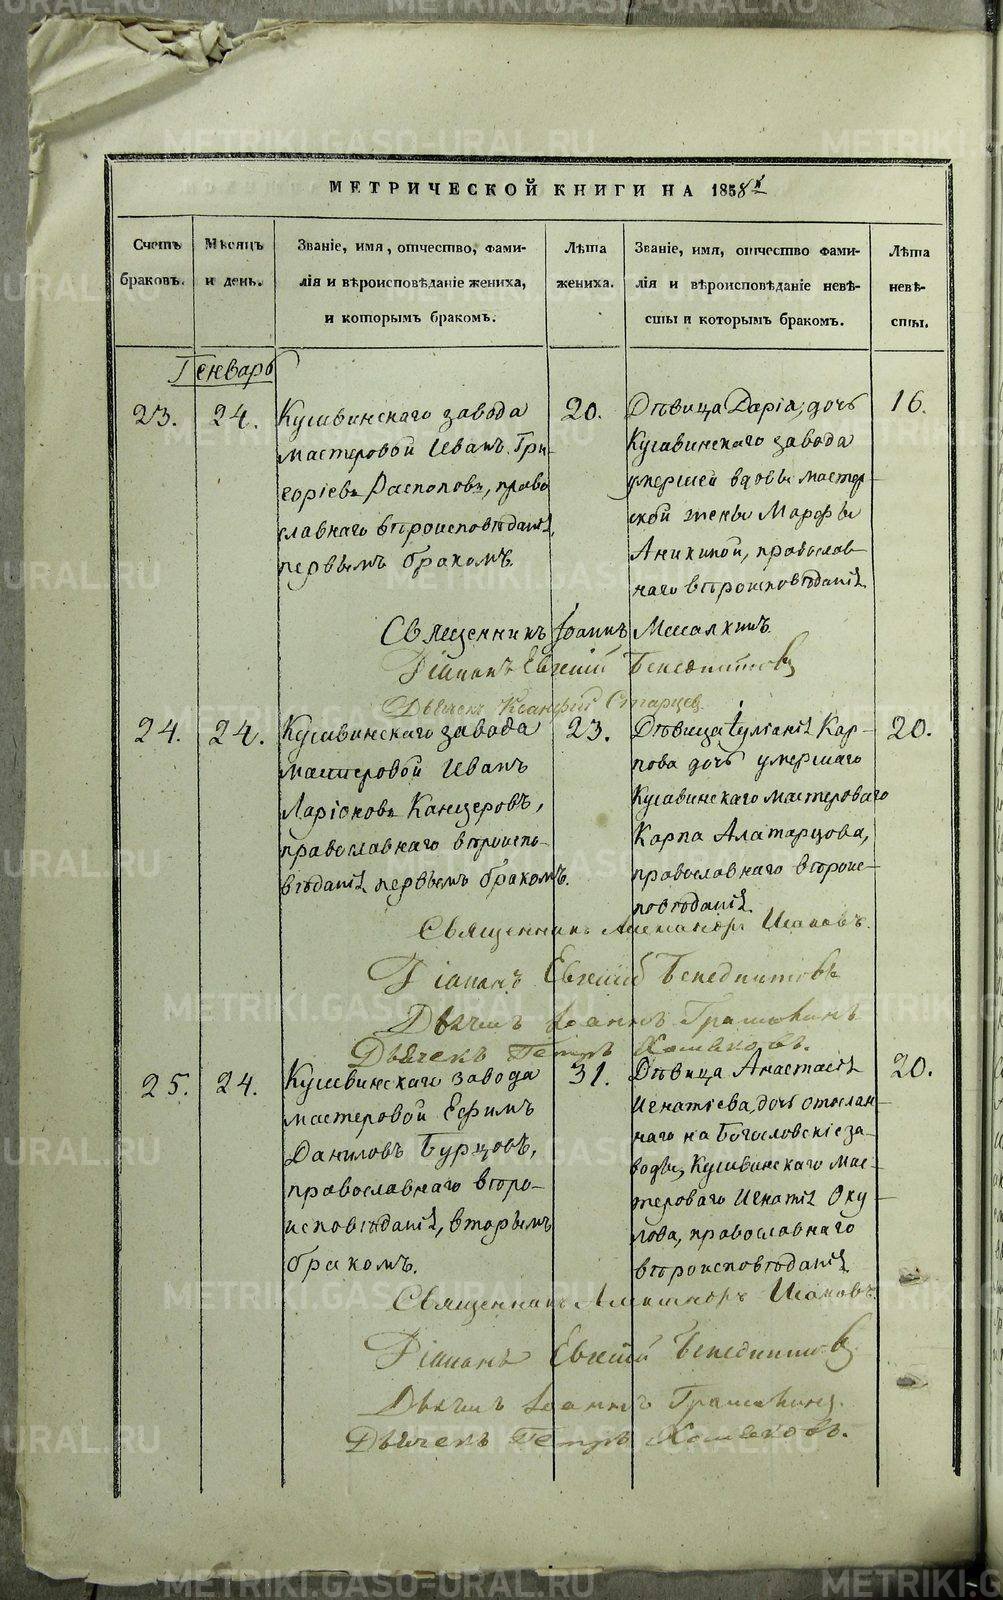 МЕТРИЧЕСКОЙ КНИГИ НА 1858й
Счетъ браковъ.
Мѣсяцъ и день.
Званіе, имя, отчество, фами-
лія и вѣроисповѣданіе жениха,
и которымъ бракомъ.
Лѣта жениха.
Званіе, имя, отчество фами-
лія и вѣроисповѣданіе невѣ-
сты и которымъ бракомъ.
Лѣта невѣ-
сты.
Генварь
23.
24.
Кушвинскаго завода
мастеровой Иванъ Гри-
горіевъ Распоповъ, право
славнаго вѣроисповѣданія,
первымъ бракомъ.
20.
Дѣвица Дарія, дочь
Кушвинскаго завода
умершей вдовы мастер-
ской жены Марфы
Аникиной, православ-
наго вѣроисповѣданія
16.
Священникъ Іоаннъ
Діаконъ Евгеній
Дьячекъ Старцев.
24.
24.
Кушвинскаго завода
мастеровой Иванъ
Ларіоновъ Канцеровъ,
православнаго вѣроиспо-
вѣданія первымъ бракомъ.
23.
Дѣвица Іуліанія Кар-
пова дочь умершаго
Кушвинскаго мастероваго
Карпа Алатарцова,
православнаго вѣроис-
повѣданія
20.
Священникъ Александръ
Діаконъ Евгеній
Дьячекъ Іоаннъ
Дьячекъ Петръ Хомяковъ.
25.
24.
Кушвинскаго завода
мастеровой Ефимъ
Даниловъ Бурцовъ,
православнаго вѣро-
исповѣданія, вторымъ
бракомъ.
31.
Дѣвица Анастасія
Игнатіева, дочь отослан-
наго на Богословскіе за-
воды, Кушвинскаго мас-
тероваго Игнатія Оку
лова, православнаго
вѣроисповѣданія
20.
Священникъ Александръ
Діаконъ Евгеній
Дьячекъ Іоаннъ
Дьячекъ Петръ Хомяковъ.
METRIKI.GASO-URAL.RU